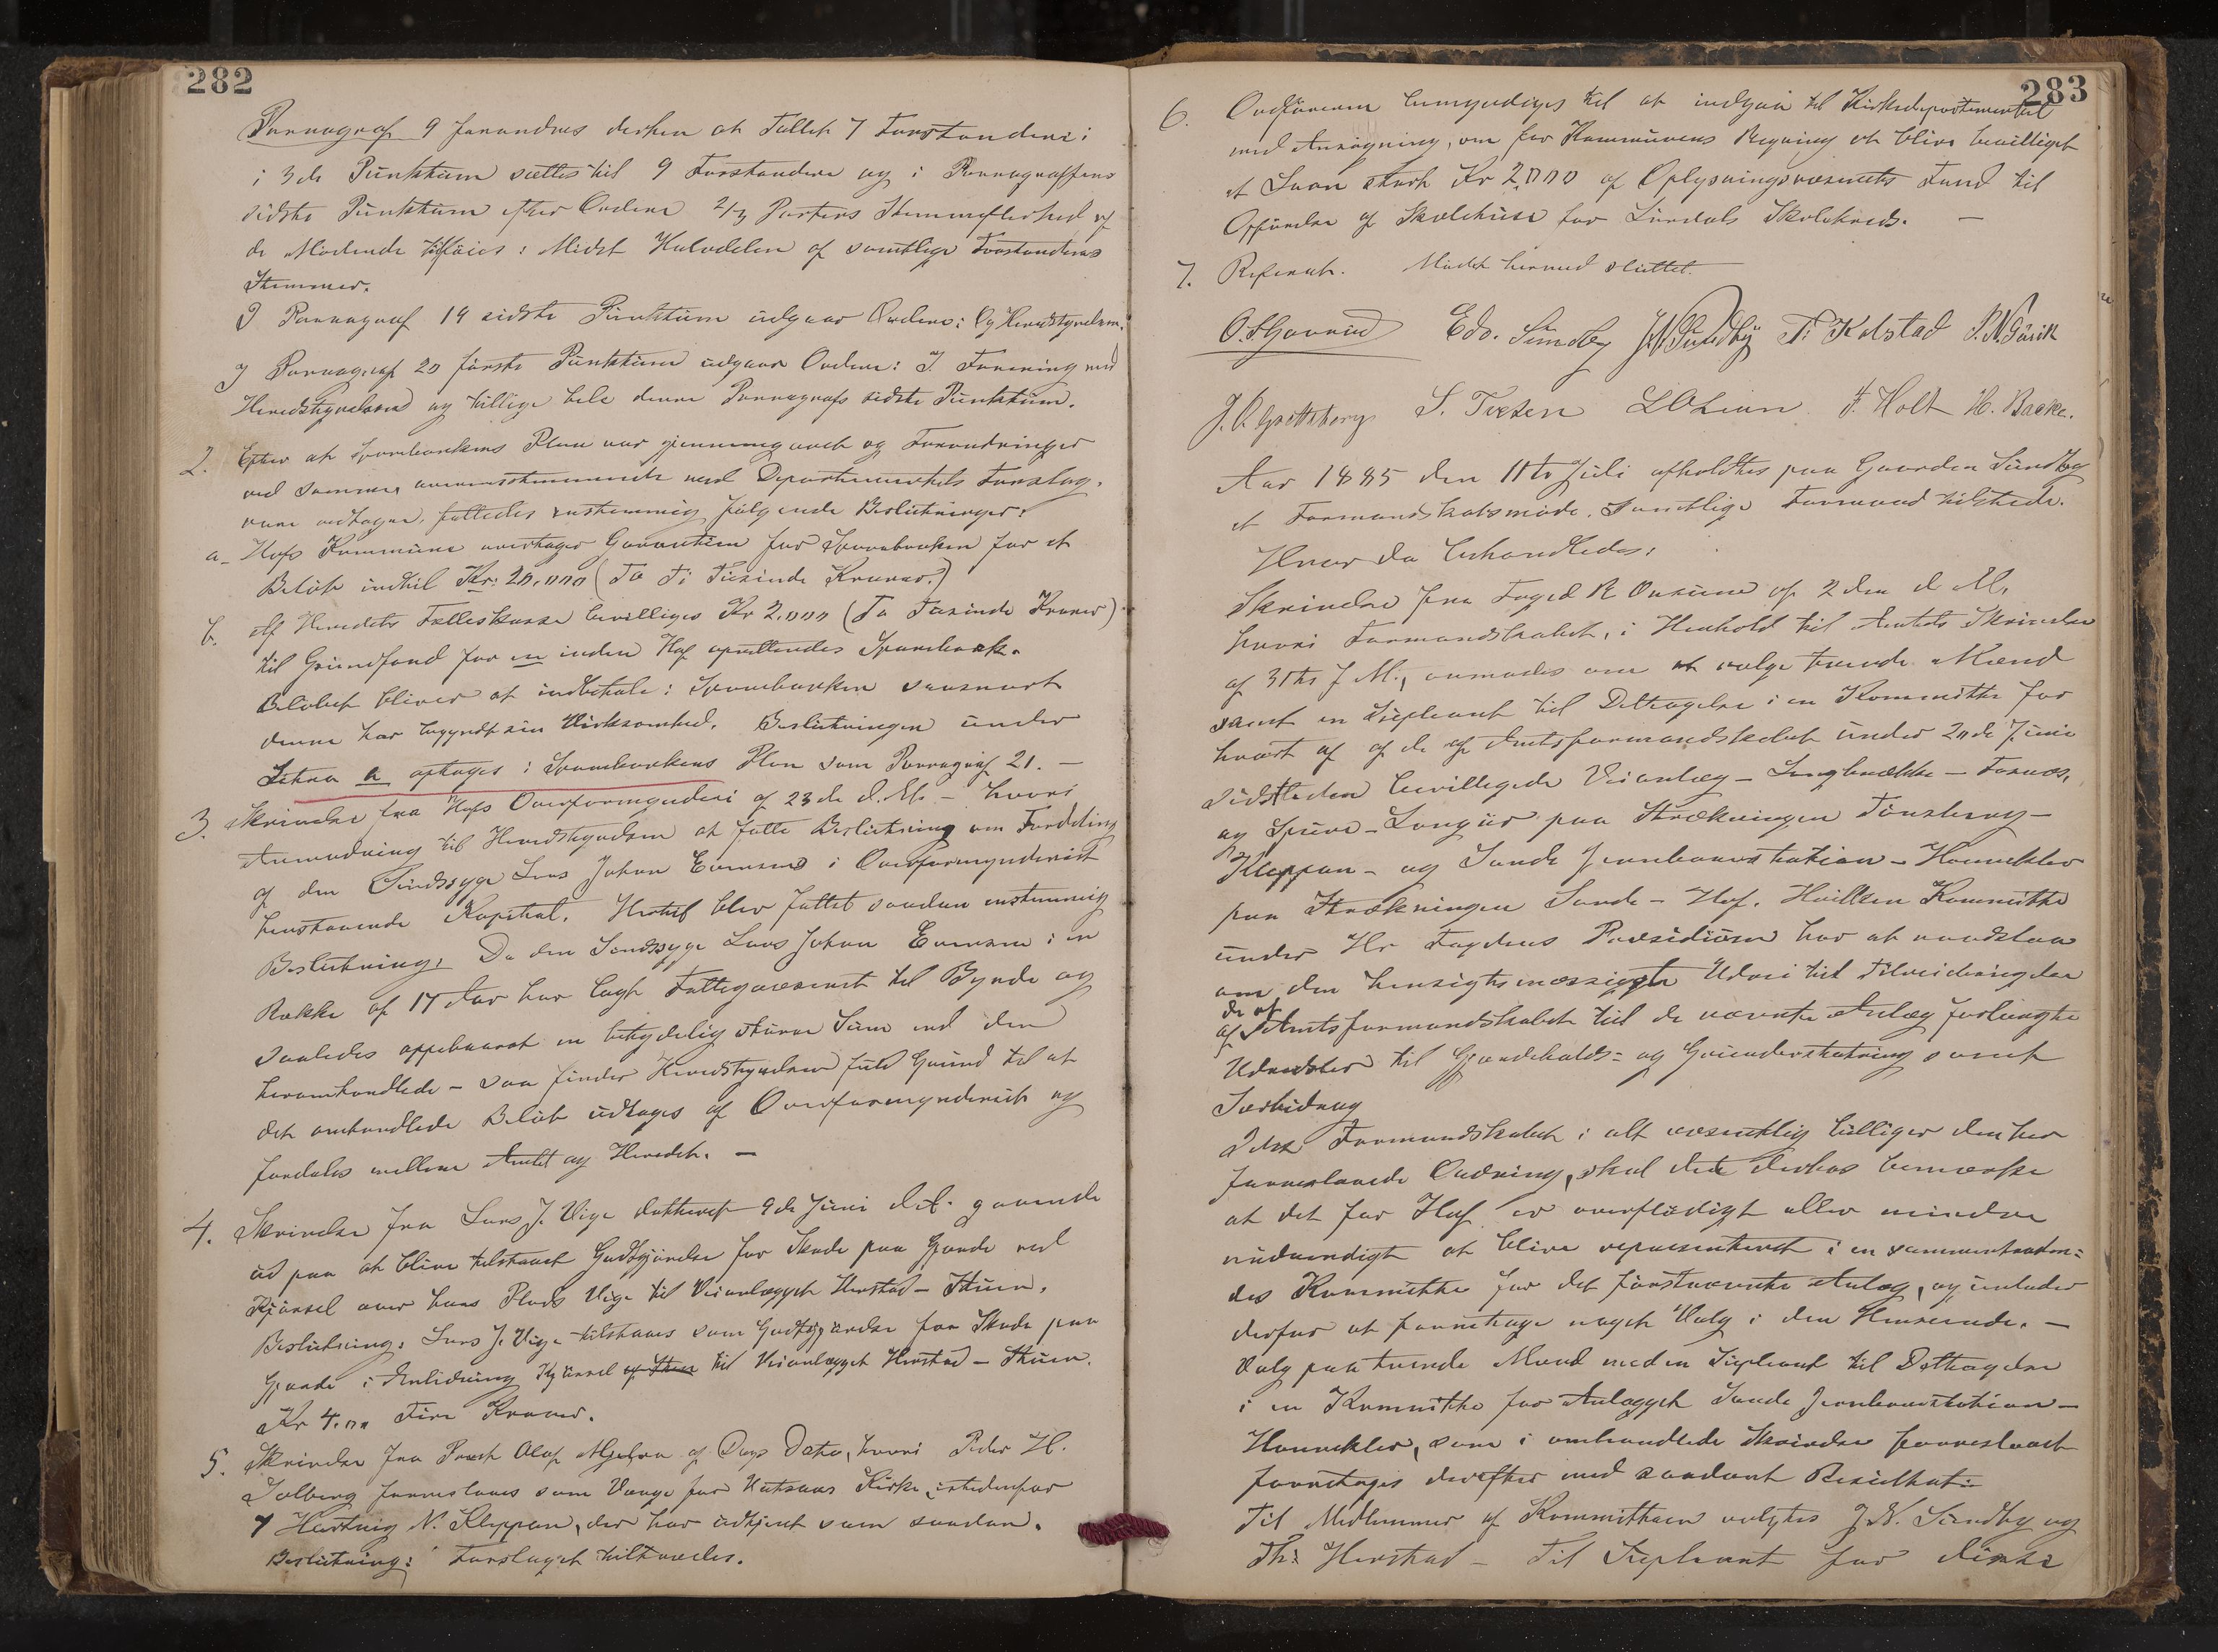 282
Paragraf 9 forandres derhen at Tallet 7 Forstandere i
i 3die Punktum sættes til 9 Forstandere og i Paragraffens
sidste Punktum efter Ordene 2/3 Parters Stemmeflerhed af
de Mødende tilføies: Mindst Halvdelen af samtlige Forstanderes
Stemmer.
I Paragraf 19 sidste Punktum udgaar Ordene: Og Herredstyrelsen.
I Paragraf 20 første Punktum udgaar Ordene: I Forening med
Herredstyrelsen og tillige hele denne Paragrafs sidste Punktum.
2. Efter at Sparebankens Plan var gjennemgaaet og Forandringer
ved samme, overensstemmende med Departementets Forslag,
vare vedtagne, fattedes enstemmig følgende Beslutninger:
a- Hofs Kommune overtager Garantien for Sparebanken for et
Beløb indtil Kr: 20,000 (To Ti Tusinde Kroner.)
b. Af Herredets Fælleskasse bevilliges Kr 2,000 (To Tusinde Kroner)
til Grundfond for en inden Hof oprettendes Sparebank.
Beløbet bliver at indbetale i Sparebanken saasnart
denne har begyndt sin Virksomhed. Beslutningen under
Litra a optages i Sparebankens Plan som Paragraf 21. –
3. Skrivelse fra Hofs Overformynderi af 23de d.M. – hvori
Anmodning til Herredstyrelsen at fatte Beslutning om Fordeling
af den Sindssyge Lars Johan Evensens i Overformynderiet
henstaaende Kapital. Hertil blev fattet saadan enstemmig
Beslutning: Da den Sindssyge Lars Johan Evensen i en
Række af 17 Aar har lagt Fattigvæsenet til Byrde og
saaledes oppebaaret en betydelig større Sum end den
heromhandlede – saa finder Herredstyrelsen fuld Grund til at
det omhandlede Beløb udtages af Overformynderiet og
fordeles mellem Amtet og Herredet. –
4. Skrivelse fra Lars J. Vige dateret 9de Juni d.A. gaaende
ud paa at blive tilstaaet Godtgjørelse for Skade paa Gjærde ved
Kjørsel over hans Plads Vige til Veianlægget Herstad – Thuen.
Beslutning: Lars J. Vige tilstaaes som Godtgjørelse for Skade paa
Gjærde i Anledning Kjørsel af Sten til Veianlægget Herstad – Thuen.
Kr 4.00 Fire Kroner.
5. Skrivelse fra Prest Olaf af Dags Dato, hvori Peder H.
Solberg foreslaaes som Værge for Vatsaas Kirke istedenfor
Hartvig N. Kleppan, der har udtjent som saadan.
Beslutning: Forslaget tiltrædes.
283
6. Ordføreren bemyndiges til at indgaa til Kirkedepartementet
med Ansøgning, om for Kommunens Regning at blive bevilliget
et Laan stort Kr 2,000 af Oplysningsvæsenets Fond til
Opførelse af Skolehuse for Sundals Skolekreds. –
7. Referat. Mødet hermed sluttet.
Edv. Sundby J.N. Sundby T: Kolstad
S. Tvesen F. Holt H. Backe.
Aar 1885 den 11te Juli afholdtes paa Gaarden Sundby
et Formandskabsmøde. Samtlige Formænd tilstede.
Hvor da behandledes:
Skrivelse fra Foged R Onsum af 2den d. M.
hvori Formandskabet, i Henhold til Amtets Skrivelse
af 3die f. M., anmodes om at vælge tvende Mænd
samt en Supleant til Deltagelse i en Kommitte for
hvert af af de af Amtsformandskabet under 20de Juni
sidstleden bevilligede Veianlæg – Langbrække – Fosnæs,
og – paa Strækningen Tønsberg –
Kleppan – og Sande Jernbanestation – Haneklev
paa Strækningen Sande – Hof. Hvilken Kommitte
under Hr Fogdens Præsidium har at raadslaa
om den hensigtsmæssigste Udvei til Tilveiebringelse
af de af Amtsformandskabet til de nævnte Anlæg forlangte
Udredsler til Gjærdehold= og Grunderstatning samt
Særbidrag
Idet Formandskabet i alt væsentlig billiger den her
foreslaaede Ordning, skal det derhos bemærke
at det for Hof er overflødigt eller mindre
nødvendigt at blive repræsenteret i en sammentræden=
des Kommitte for det førstnævnte Anlæg, og undlader
derfor at foretage noget Valg i den Henseende. –
Valg paa tvende Mænd med en Supleant til Deltagelse
i en Kommitte for Anlægget Sande Jernbanestation –
Haneklev, som i omhandlede Skrivelse foreslaaet
foretages derefter med saadant Resultat:
Til Medlemmer af Kommitteen valgtes J.N. Sundby og
Th: Herstad – Til Supleant for disse